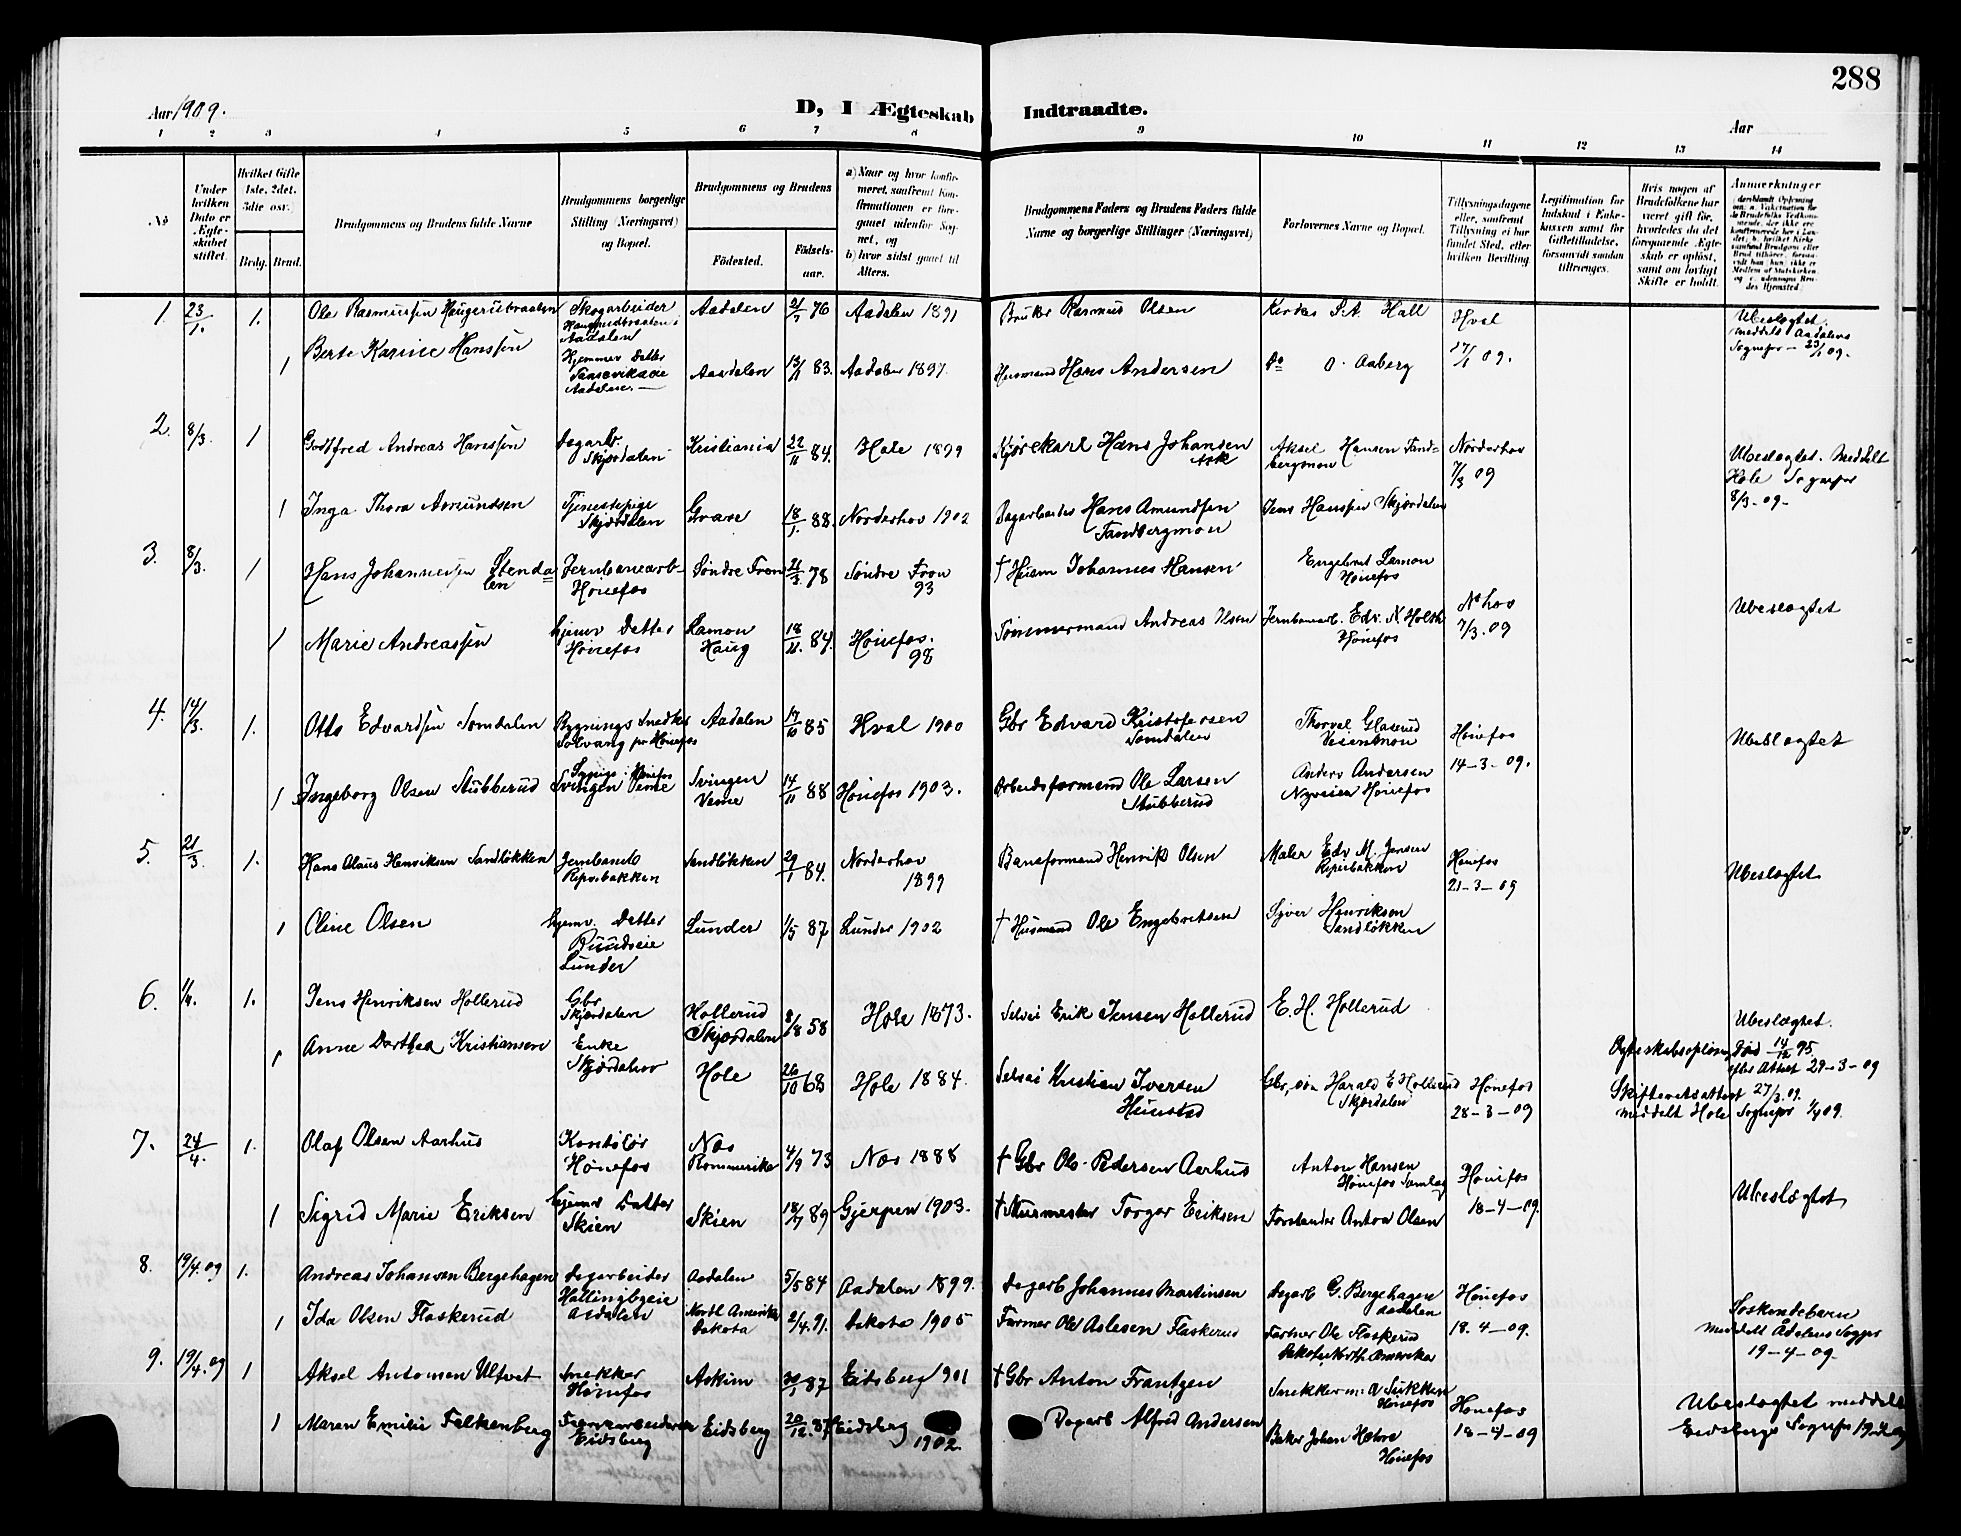 288
Aar 1909.
D, I Ægteskab Indtraadte.
Aar
1 2 3 4 5 6 7 8 9 10 11 12 13 14
No
Under hvilken Dato er Ægteskabet stiftet.
Hvilket Gifte 1ste, 2det, 3die osv.
Brdg. Brud.
Brudgommens og Brudens fulde Navne
Brudgommens borgerlige Stilling (Næringsvei) og Bopæl.
Brudgommens og Brudens
Fødested.
Fødselsaar.
a) Naar og hvor konfirmeret, samfremt Konfirmationen er foregaaet udenfor Sognet, og
b) hvor sidst gaaet til Alters.
Brudgommens Faders og Brudens Faders fulde Navne og borgerlige Stillinger (Næringsvei)
Forlovernes Navne og Bopæl.
Tillysningsdagene eller, saafremt Tillysning ei har fundet Sted, efter hvilken Bevilling
Legitimation for Indskud i Enkekassen samt for Giftetilladelse, forsaavidt saadan tiltrænges.
Hvis nogen af Brudefolkene har været gift før, hvorledes da det foregaaende Ægteskab er opløst, samt om lovligt Skifte er holdt.
Anmærkninger
1. 23/1. 1. Ole Rasmussen Haugerudbraaten Skogarbeider Aadalen 21/7 76 Aadalen 1891 Bruker Rasmus Olsen Hall Hval 17/1 09. Ubeslægtet. meddelt Aadalens Sognepr 23/1 09.
1 Berte Karine Hanssen Hjemmev Datter Aadalen Aadalen 13/11 83. Aadalen 1897. Husmand Hans Andersen Do O. Aaberg
2. 8/3. 1 Godtfred Andreas Hanssen Dagarb. Skjærdalen Kristiania 22/11 84. Hole 1899 Kjørekarl Hans Johansen Ask Aksel Hansen Tandbergmoen Norderhov 7/3 09 Ubeslægtet. Meddelt Hole Sognepr 8/3-09-
1 Inga Thora Amundsen Tjenestepige Skjærdalen 18/1. 88. Norderhov 1902 Dagarbeider Hans Amundsen Tandbergmoen Jens Hanssen Skjærdalen
3. 8/3. 1 Hans Johannessen Stendalen Jernbanearb. Hønefos Søndre Fron 21/3 78 Søndre Fron 93 † Husm Johannes Hansen Engebret Lamoen Hønefos N.hov 7/3.09 Ubeslægtet
1 Marie Andreassen hjemv Datter Hønefos Lamoen Haug 84. Hønefos. 98 Tømmermand Andreas Olsen Jernbanearb. Edv. N. Holth Hønefos
4. 14/3. 1. Otto Edvardsen Somdalen Bygnings Snedker Solvang pr Hønefos Aadalen 17/10 85 Hval 1900 Gbr Edvard Kristofersen Somdalen Thorval Glaserud Veienmoen Hønefos 14-3-09. Ubeslægtet
1 Ingeborg Olsen Stubberud Sypige Hønefos Svingen Veme Svingen Veme 14/11 88 Hønefos 1903. Arbeidsformand Ole Larsen Stubberud Anders Andersen Nyveien Hønefos
5. 21/3 1. Hans Olaus Henriksen Sandløkken Jernbanearb Riperbakken Sandløkken 29/1 84. Norderhov 1899 Baneformand Henrik Olsen Maler Edv M. Jensen Riperbakken Hønefos 21-3-09 Ubeslægtet
1 Oline Olsen hjemv. Datter Ruudseie Lunder Lunder 1/5 87 Lunder 1902 † Husmand Ole Engebretsen Syver Henriksen Sandløkken
6. 1/4. 1. Jens Henriksen Hollerud Gbr Skjærdalen Hollerud Skjærdalen 8/8 58 Hole 1873. Selvei Erik Jensen Hollerud E. H. Hollerud Ubeslægtet.
1 Anne Dorthea Kristiansen Enke Skjærdalen Hole 26/10 68 Hole 1884. Selvei Kristian Iversen Hunstad Gbr, søn Harald E Hollerud Skjærdalen Hønefos 28-3-09 Ægteskabsopløsn Død 14/12 95 efter Attest 29-3-09 Skifteretsattest 27/3.09. meddelt Hole Sognepr 1/4 09.
7. 24/4. 1. Olaf Olsen Aarhus Kontolør Hønefos Nes Rommerike 4/9 73 Nes 1888 † Gbr Ole Pedersen Aarhus Anton Hansen Hønefos Samlag Hønefos 18-4-09. Ubeslægtet
1 Sigrid Marie Eriksen hjemv Datter Skien Skien 18/7 89 Gjerpen 1903. † Murmester Torger Eriksen Forstander Anton Olsen
8. 19/4.09 1. Andreas Johansen Bergehagen Dagarbeider Hallingbyeie Aadalen Aadalen 5/5 84 Aadalen 1899. Dagarb Johannes Martinsen Dagarb G. Bergehagen Aadalen Hønefos 18.4-09. Søskendebarn meddelt Ådalens Sognepr 19-4-09.
1 Ida Olsen Flaskerud North Amerika Dakota 2/4. 91. Dakota 1905 Farmer Ole Aslesen Flaskerud Farbror Ole Flaskerud Dakota North Amerika
9. 19/4.09 1 Aksel Antonsen Ultvet Snekker Hønefos Askim 30/1 87 Eidsberg 1901 † Gbr Anton Frantzen Snekker Hønefos Hønefos 18-4-09 Ubeslægtet meddelt Eidsbergs Sognepr 19-4-09
1 Maren Emilie Falkenberg Eidsberg Eidsberg 20/12. 87 Eidsberg 1902. Dagarb Alfred Andersen Baker Johan Hønefos